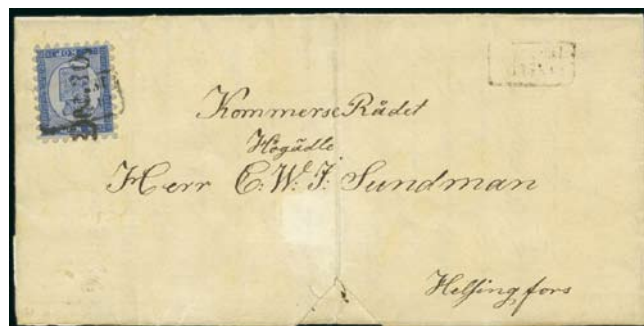 Kommerse Rådet
Högädle
Herr C: W: I: Sundman
Helsingfors